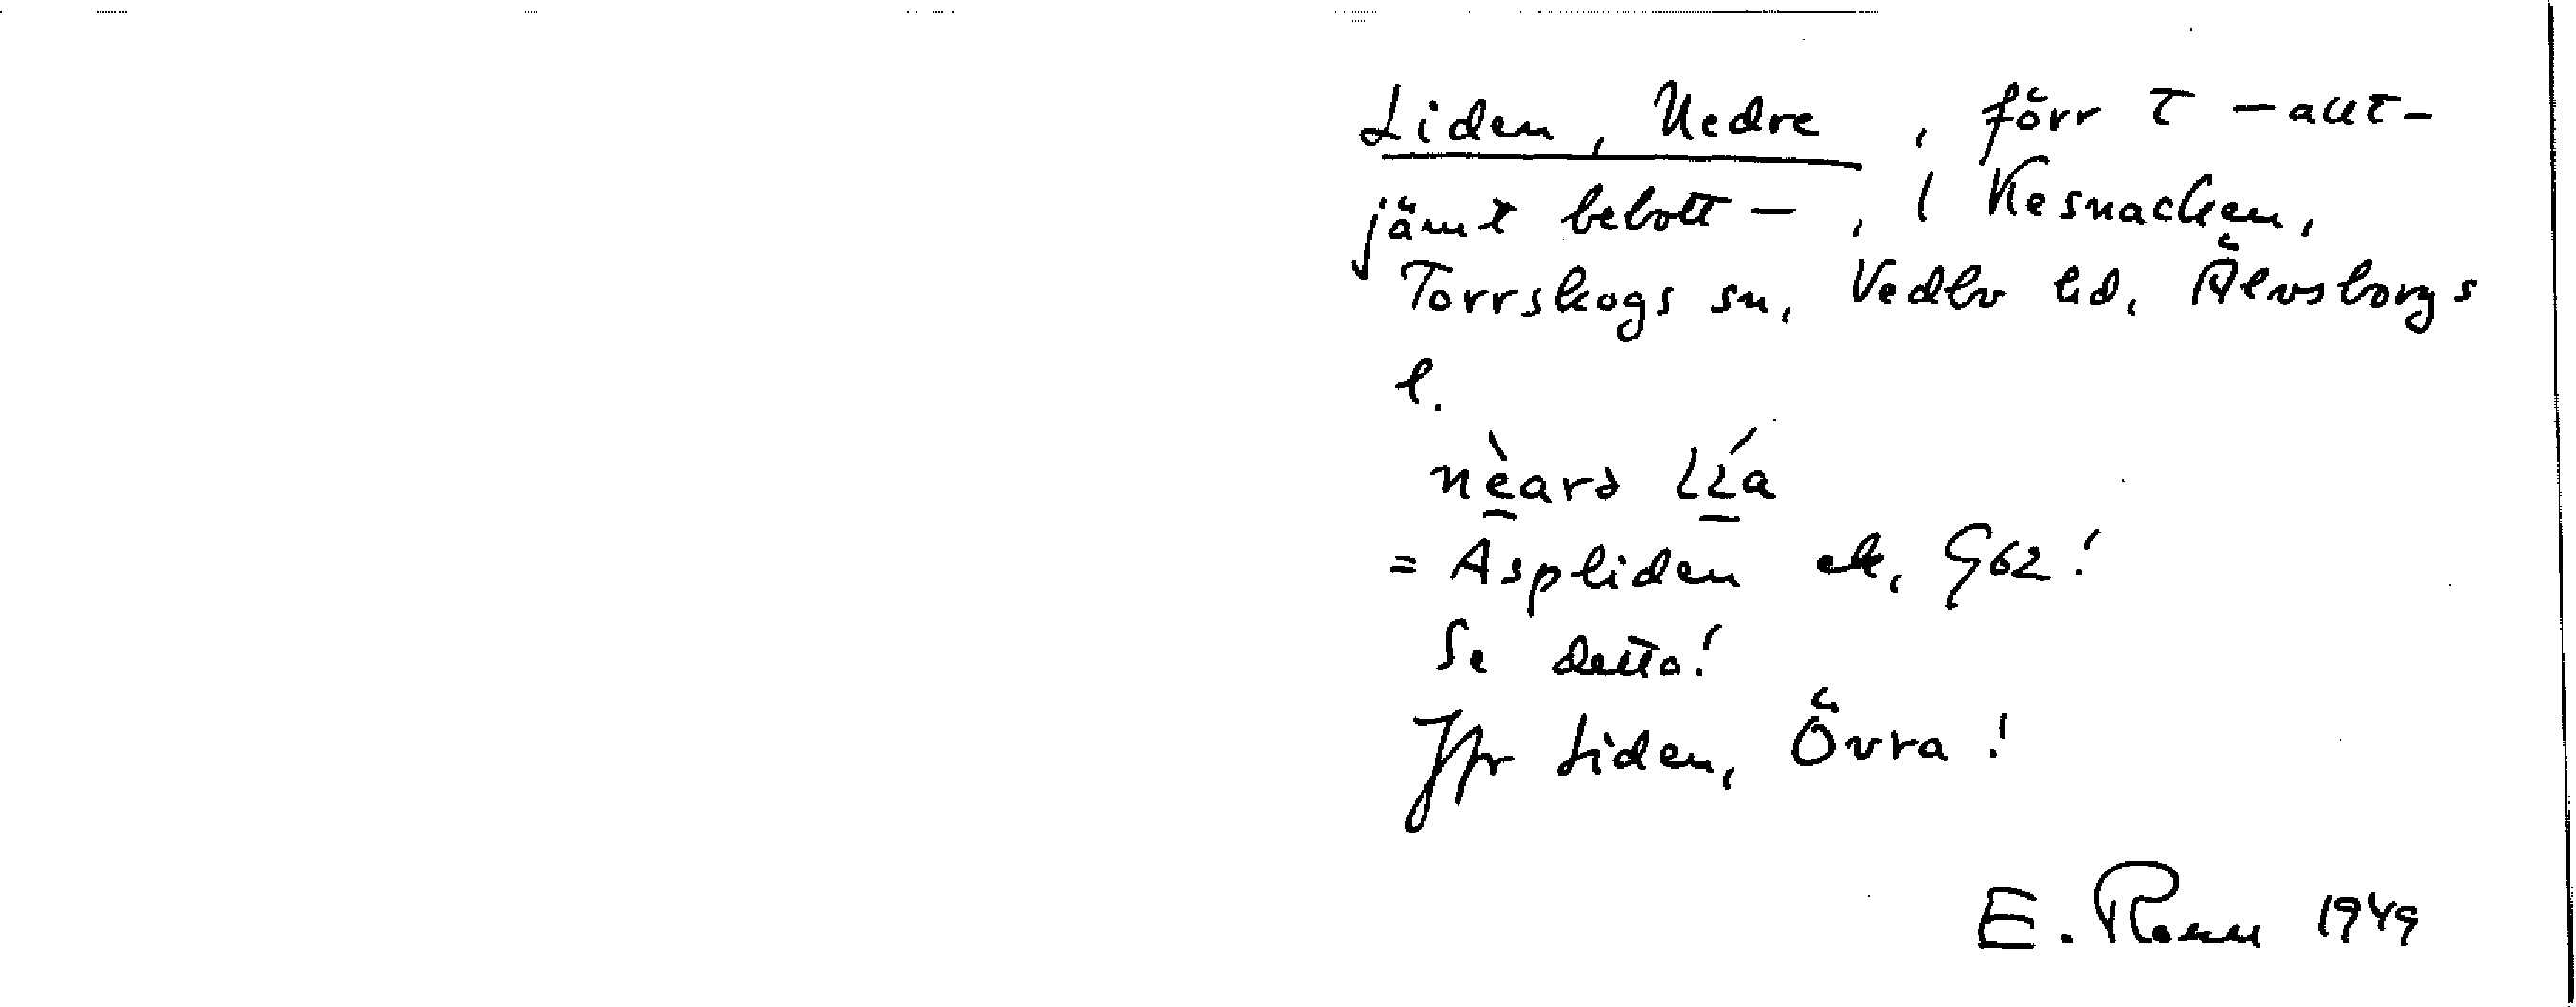 Liden, Nedre, förr t – allt-
jämt bebott –, i Kesnacken,
Torrskogs sn, Vedbo hd, Älvsborgs
l.
nèarə lía
= Aspliden ek. G62!
Se detta!
Jfr Liden, Övra!
E. Renn 1949